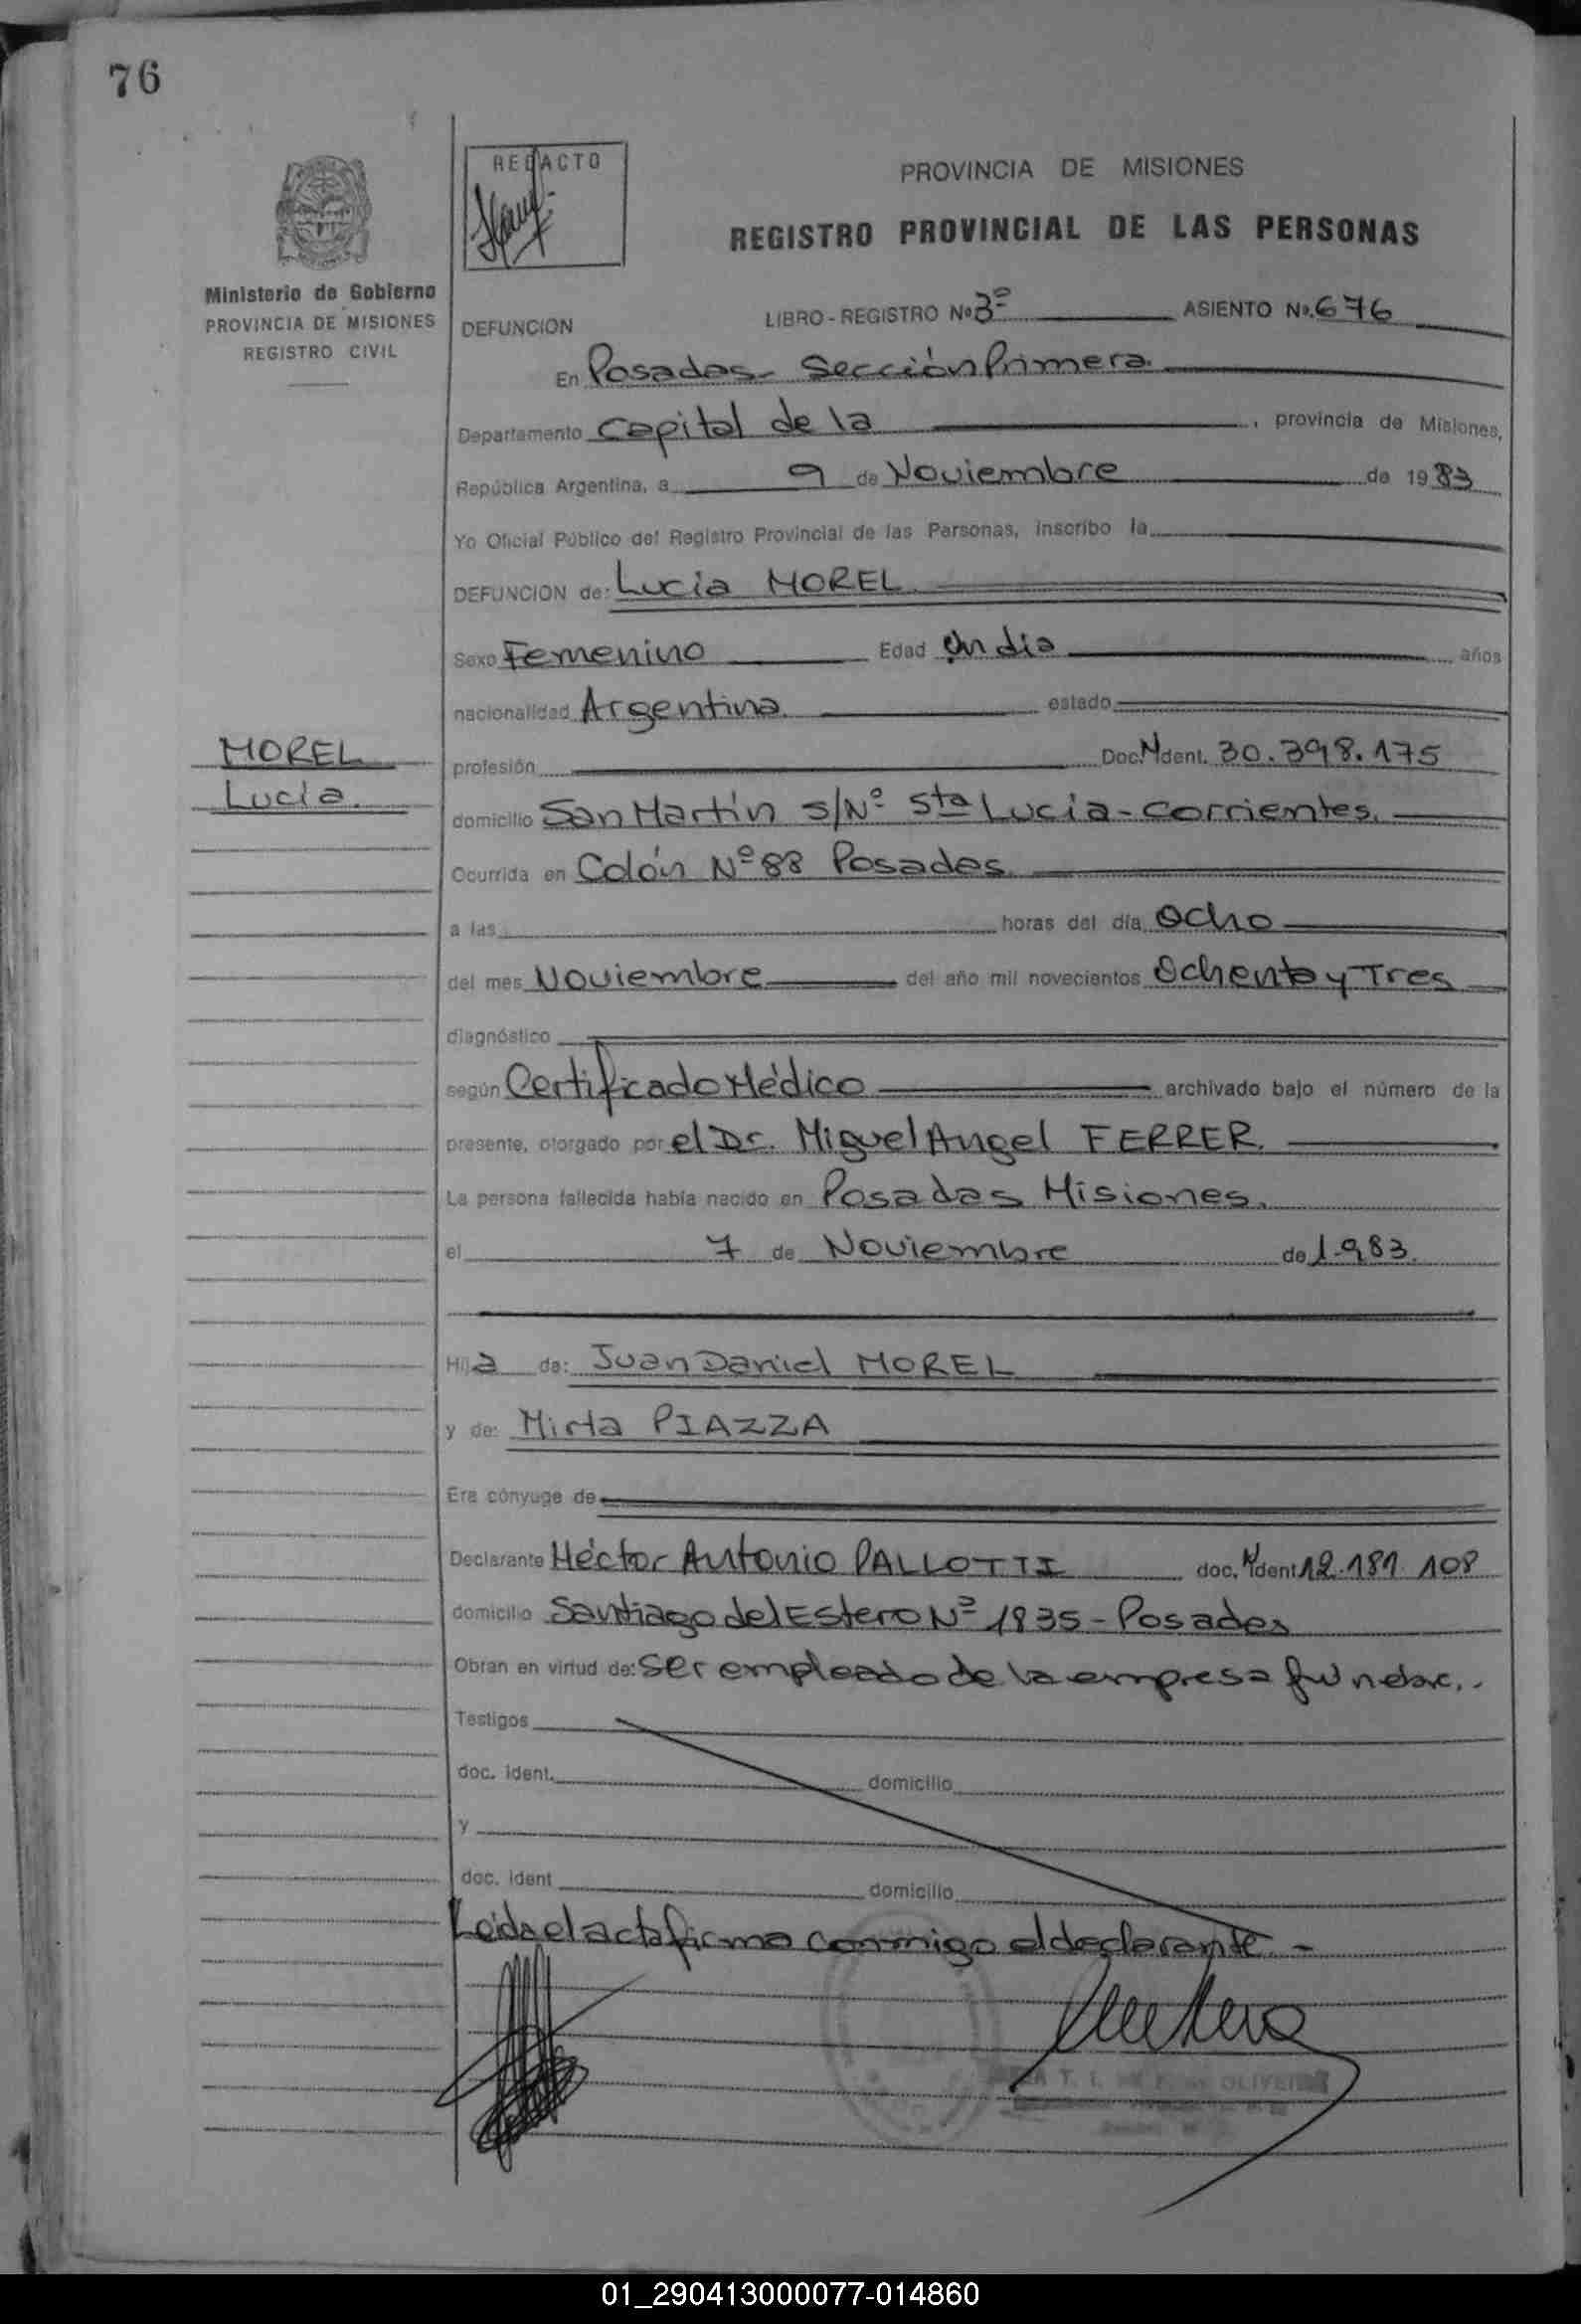 76
REDACTO
PROVINCIA DE MISIONES
REGISTRO PROVINCIAL DE LAS PERSONAS
Ministerio de Gobierno
PROVINCIA DE MISIONES
REGISTRO CIVIL
DEFUNCION
LIBRO - REGISTRO Nº 3º ASIENTO Nº. 676
En Posadas - Sección Primera
Departamento Capital de la, provincia de Misiones,
República Argentina, a 9 de Noviembre de 1983
Yo Oficial Público del Registro Provincial de las Personas, inscribo la
DEFUNCION de: Lucía MOREL
Sexo Femenino Edad Un día años
nacionalidad Argentina estado
MOREL
Lucía.
profesión Doc. N Ident. 30.398.175
domicilio San Martín S/Nº Sta Lucía - Corrientes.
Ocurrida en Colón Nº 88 Posadas
a las horas del día Ocho
del mes Noviembre del año mil novecientos Ochenta y Tres
diagnóstico
según Certificado Médico archivado bajo el número de la
presente, otorgado por el Dr. Miguel Angel FERRER.
La persona fallecida había nacido en Posadas Misiones.
el 7 de Noviembre de 1.983.
Hija de: Juan Daniel MOREL
y de: Mirta PIAZZA
Era cónyuge de
Declarante Héctor Antonio PALLOTTI doc. N Ident 12.181.108
domicilio Santiago del Estero Nº 1835 - Posadas
Obran en virtud de: Ser empleado de la empresa
Testigos
doc. ident. domicilio
y
doc. ident domicilio
Leída el acta firma conmigo el declarante. -
T. I. OLIVEIRA
01_290413000077-014860